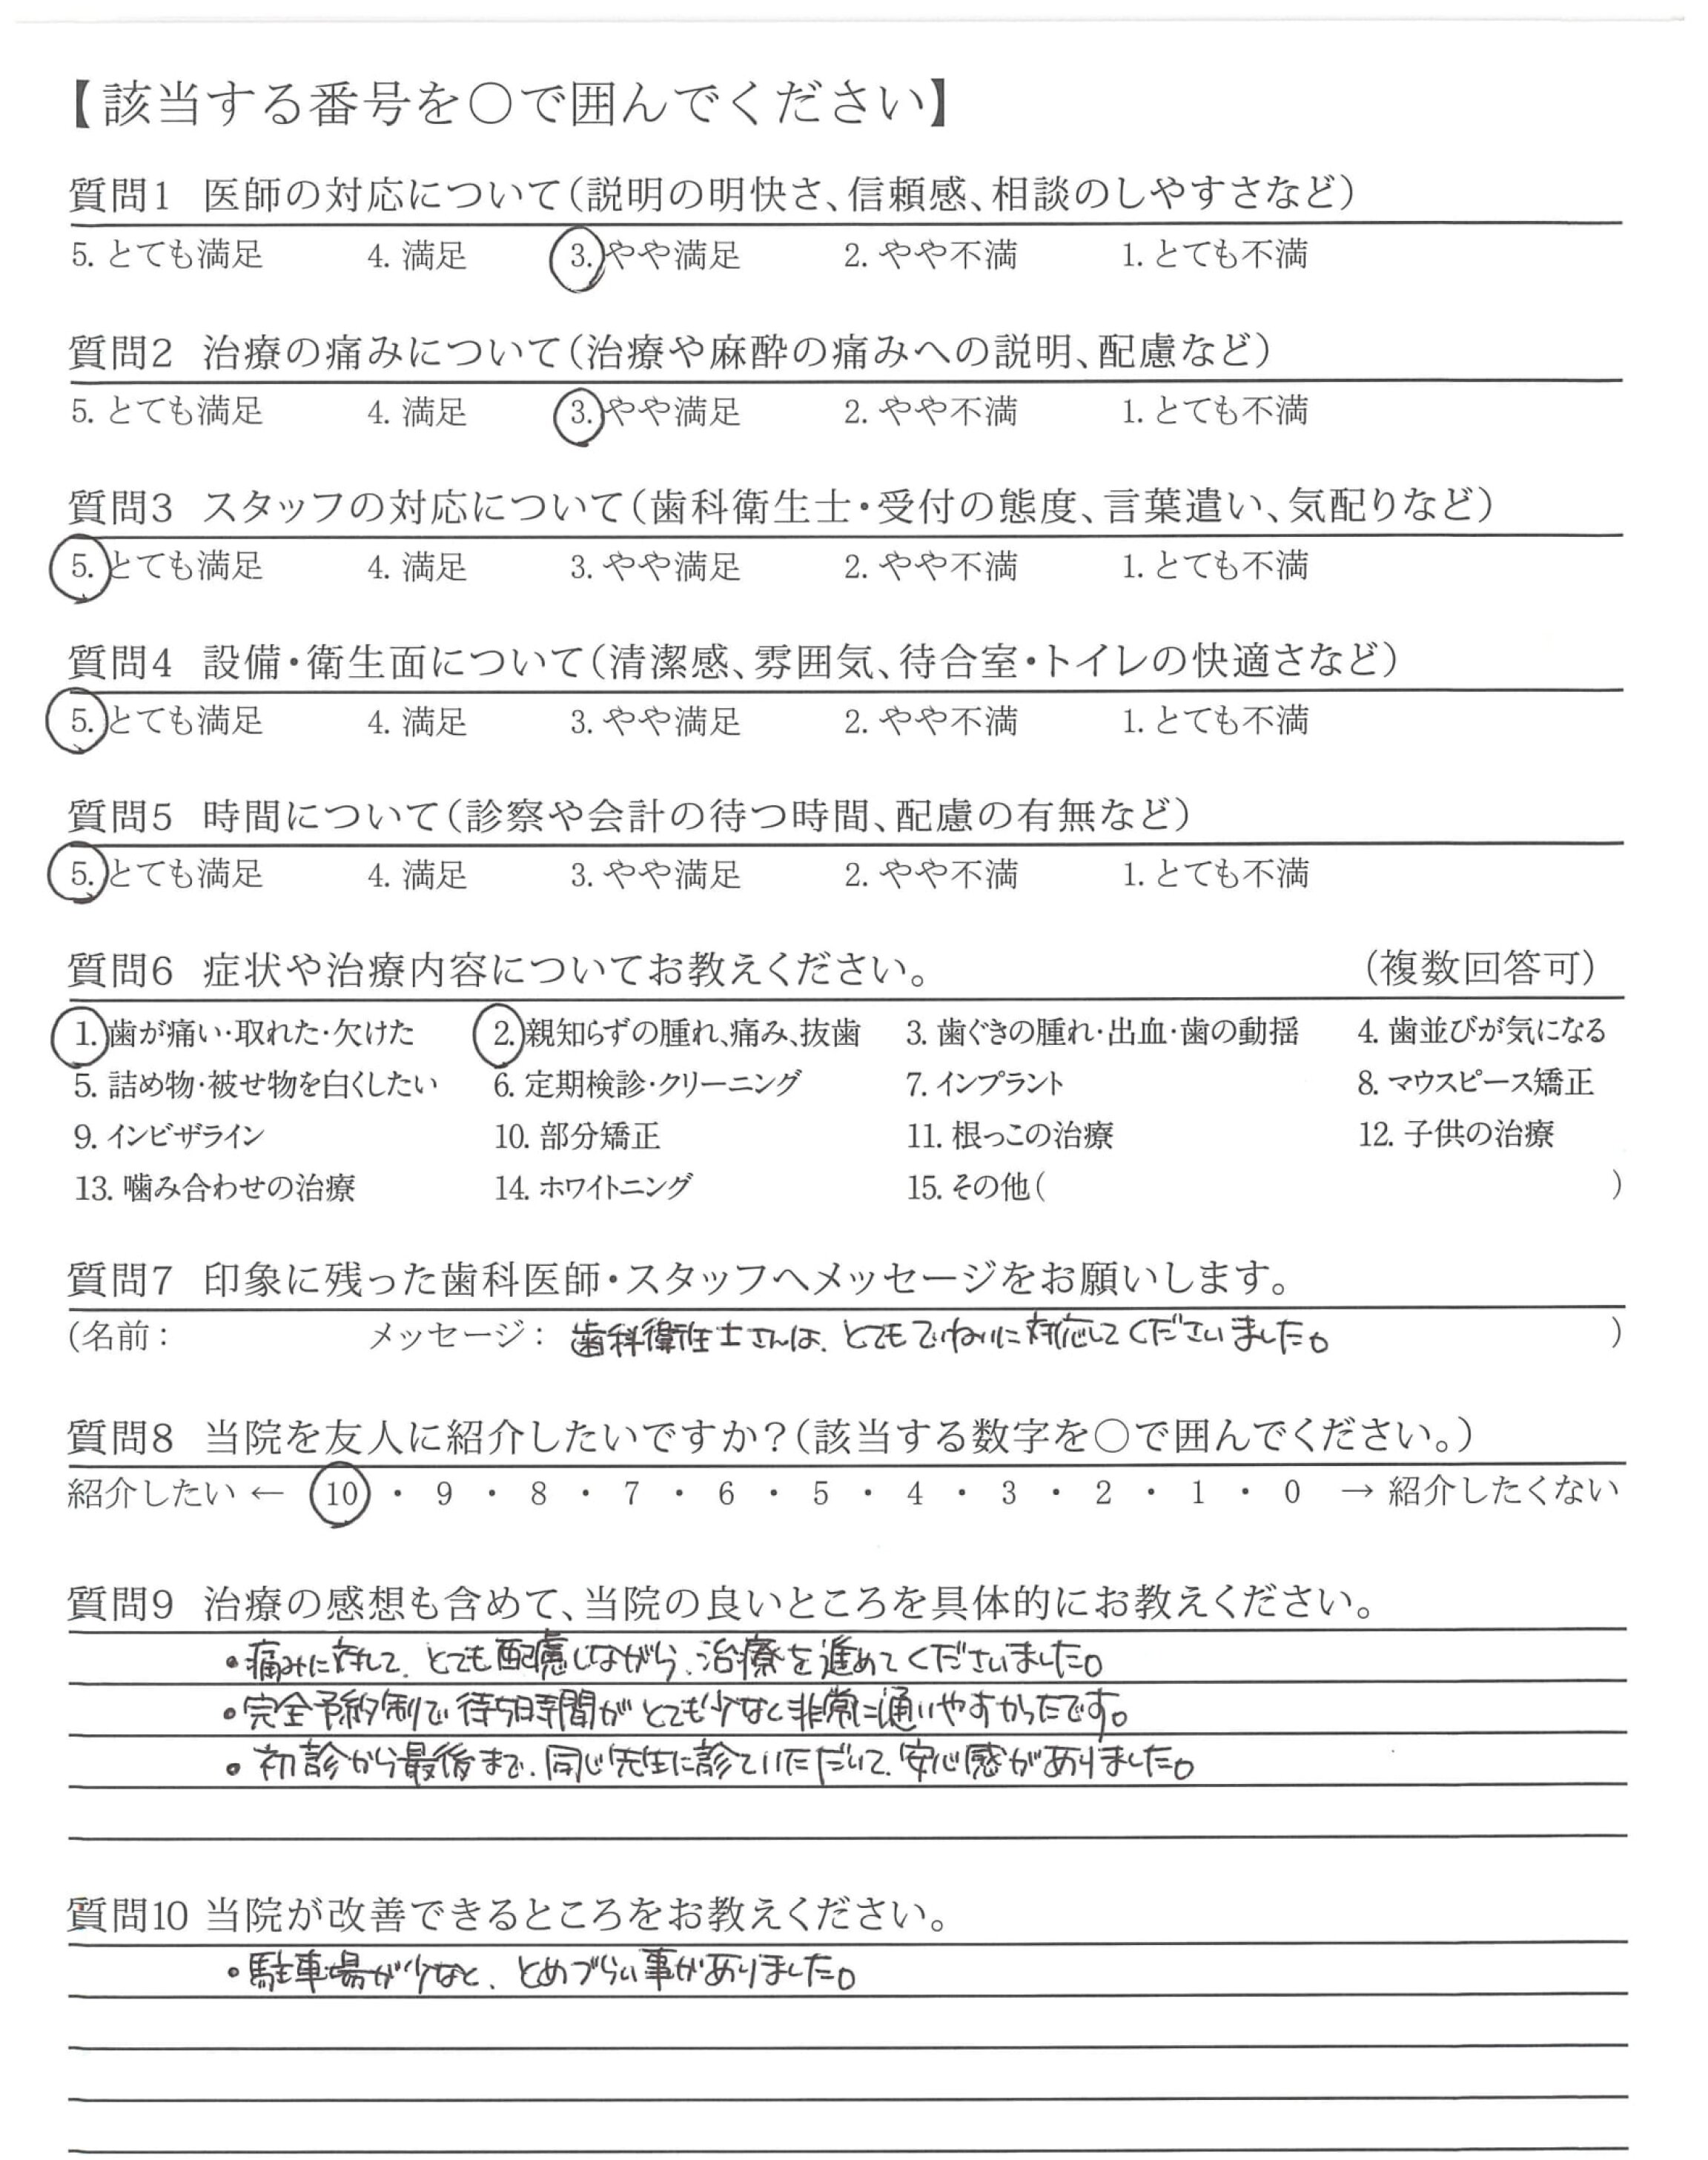 【該当する番号を〇で囲んでください】
質問1 医師の対応について(説明の明快さ、信頼感、相談のしやすさなど)
5. とても満足 4. 満足 3. やや満足 2. やや不満 1. とても不満
質問2 治療の痛みについて(治療や麻酔の痛みへの説明、配慮など)
5. とても満足 4. 満足 3. やや満足 2. やや不満 1. とても不満
質問3 スタッフの対応について(歯科衛生士・受付の態度、言葉遣い、気配りなど)
5. とても満足 4. 満足 3. やや満足 2. やや不満 1. とても不満
質問4 設備・衛生面について(清潔感、雰囲気、待合室・トイレの快適さなど)
5. とても満足 4. 満足 3. やや満足 2. やや不満 1. とても不満
質問5 時間について(診察や会計の待つ時間、配慮の有無など)
5. とても満足 4. 満足 3. やや満足 2. やや不満 1. とても不満
質問6 症状や治療内容についてお教えください。 (複数回答可)
1. 歯が痛い・取れた・欠けた 2. 親知らずの腫れ、痛み、抜歯 3. 歯ぐきの腫れ・出血・歯の動揺 4. 歯並びが気になる
5. 詰め物・被せ物を白くしたい 6. 定期検診・クリーニング 7. インプラント 8. マウスピース矯正
9. インビザライン 10. 部分矯正 11. 根っこの治療 12. 子供の治療
13. 噛み合わせの治療 14. ホワイトニング 15. その他( )
質問7 印象に残った歯科医師・スタッフへメッセージをお願いします。
(名前: メッセージ: 歯科衛生士さんは、とてもていねいに対応してくださいました。 )
質問8 当院を友人に紹介したいですか?(該当する数字を〇で囲んでください。)
紹介したい ← 10 ・ 9 ・ 8 ・ 7 ・ 6 ・ 5 ・ 4 ・ 3 ・ 2 ・ 1 ・ 0 → 紹介したくない
質問9 治療の感想も含めて、当院の良いところを具体的にお教えください。
・痛みに対して、とても配慮しながら、治療を進めてくださいました。
・完全予約制で待ち時間がとても少なく非常に通いやすかったです。
・初診から最後まで、同じ先生に診ていただいて、安心感がありました。
質問10 当院が改善できるところをお教えください。
・駐車場が少なく、とめづらい事がありました。